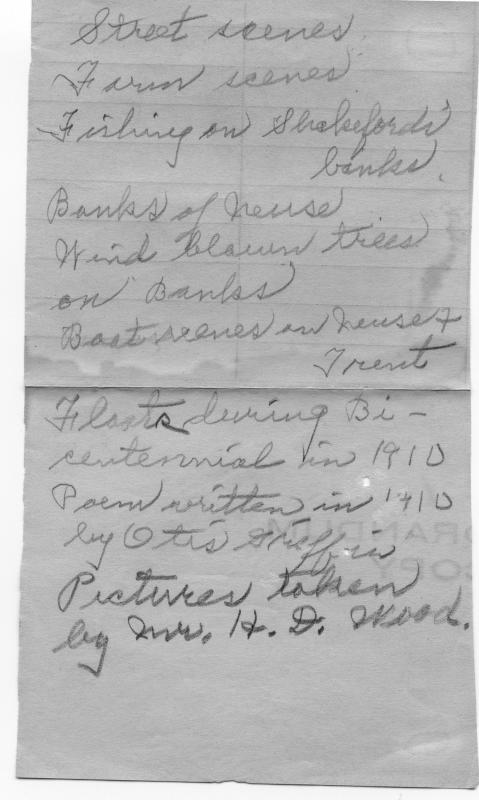 Street scenes
Farm scenes
Fishing on Shakefords'
banks.
Banks of Neuse
Wind blown trees
on Banks
Boat scenes on Neuse &
Trent
Floats during Bi-
centennial in 1910
Poem written in 1910
by Otis Griffin
Pictures taken
by Mr. H. D. Wood.
ORANDUM
COPY